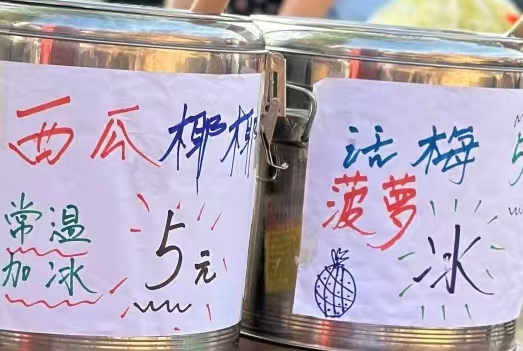 西瓜椰椰
常温
加冰
5元
活梅
菠萝
冰